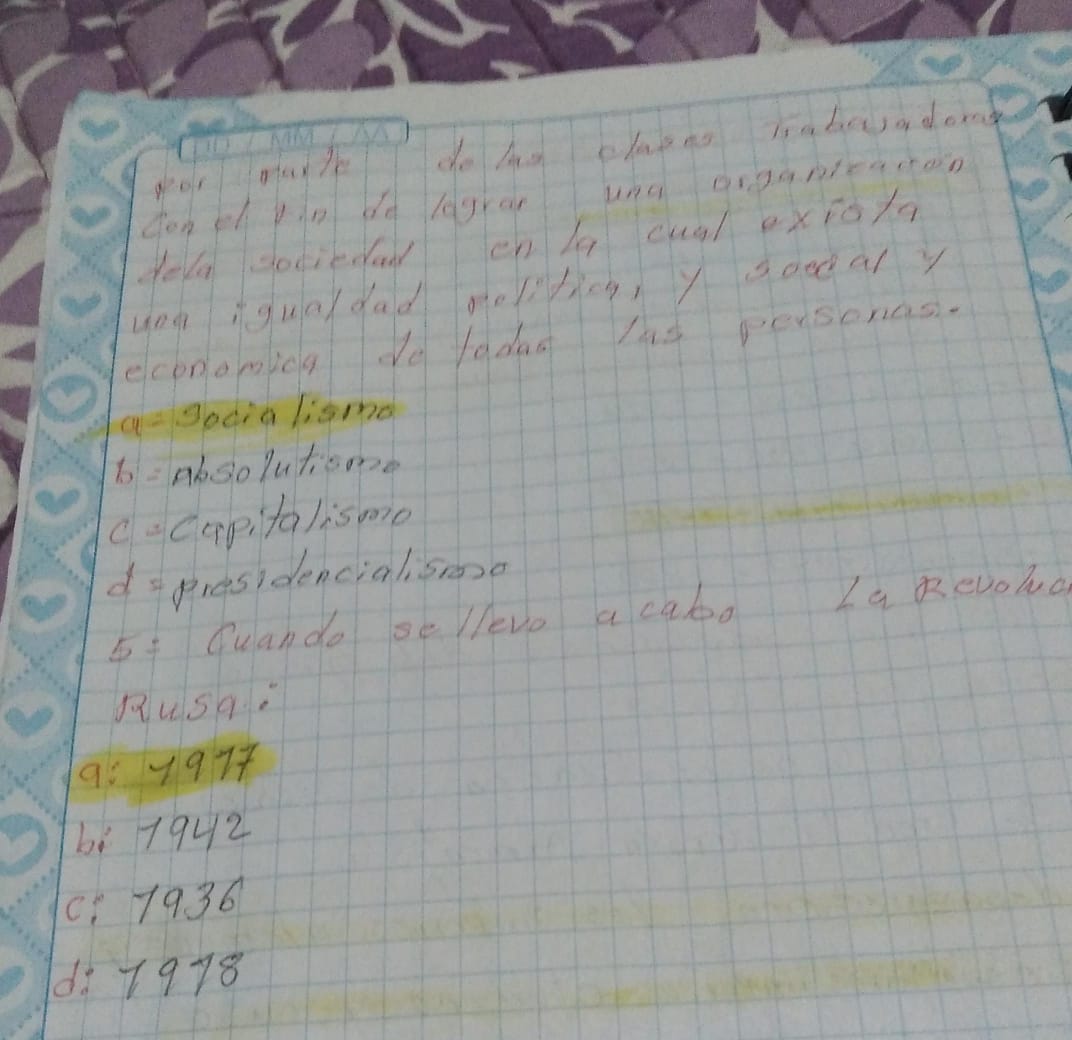 DD / MM / AA
por parte de las clases trabajadoras
con el fin de lograr una organización
dela sociedad en la cual exista
una igualdad politica, y social y
economica de todas las personas.
a= Socialismo
b= Absolutismo
c= Capitalismo
d= presidencialismo
5= Cuando se llevo a cabo La Revoluc
Rusa:
a: 1917
b: 1942
c: 1936
d: 1918